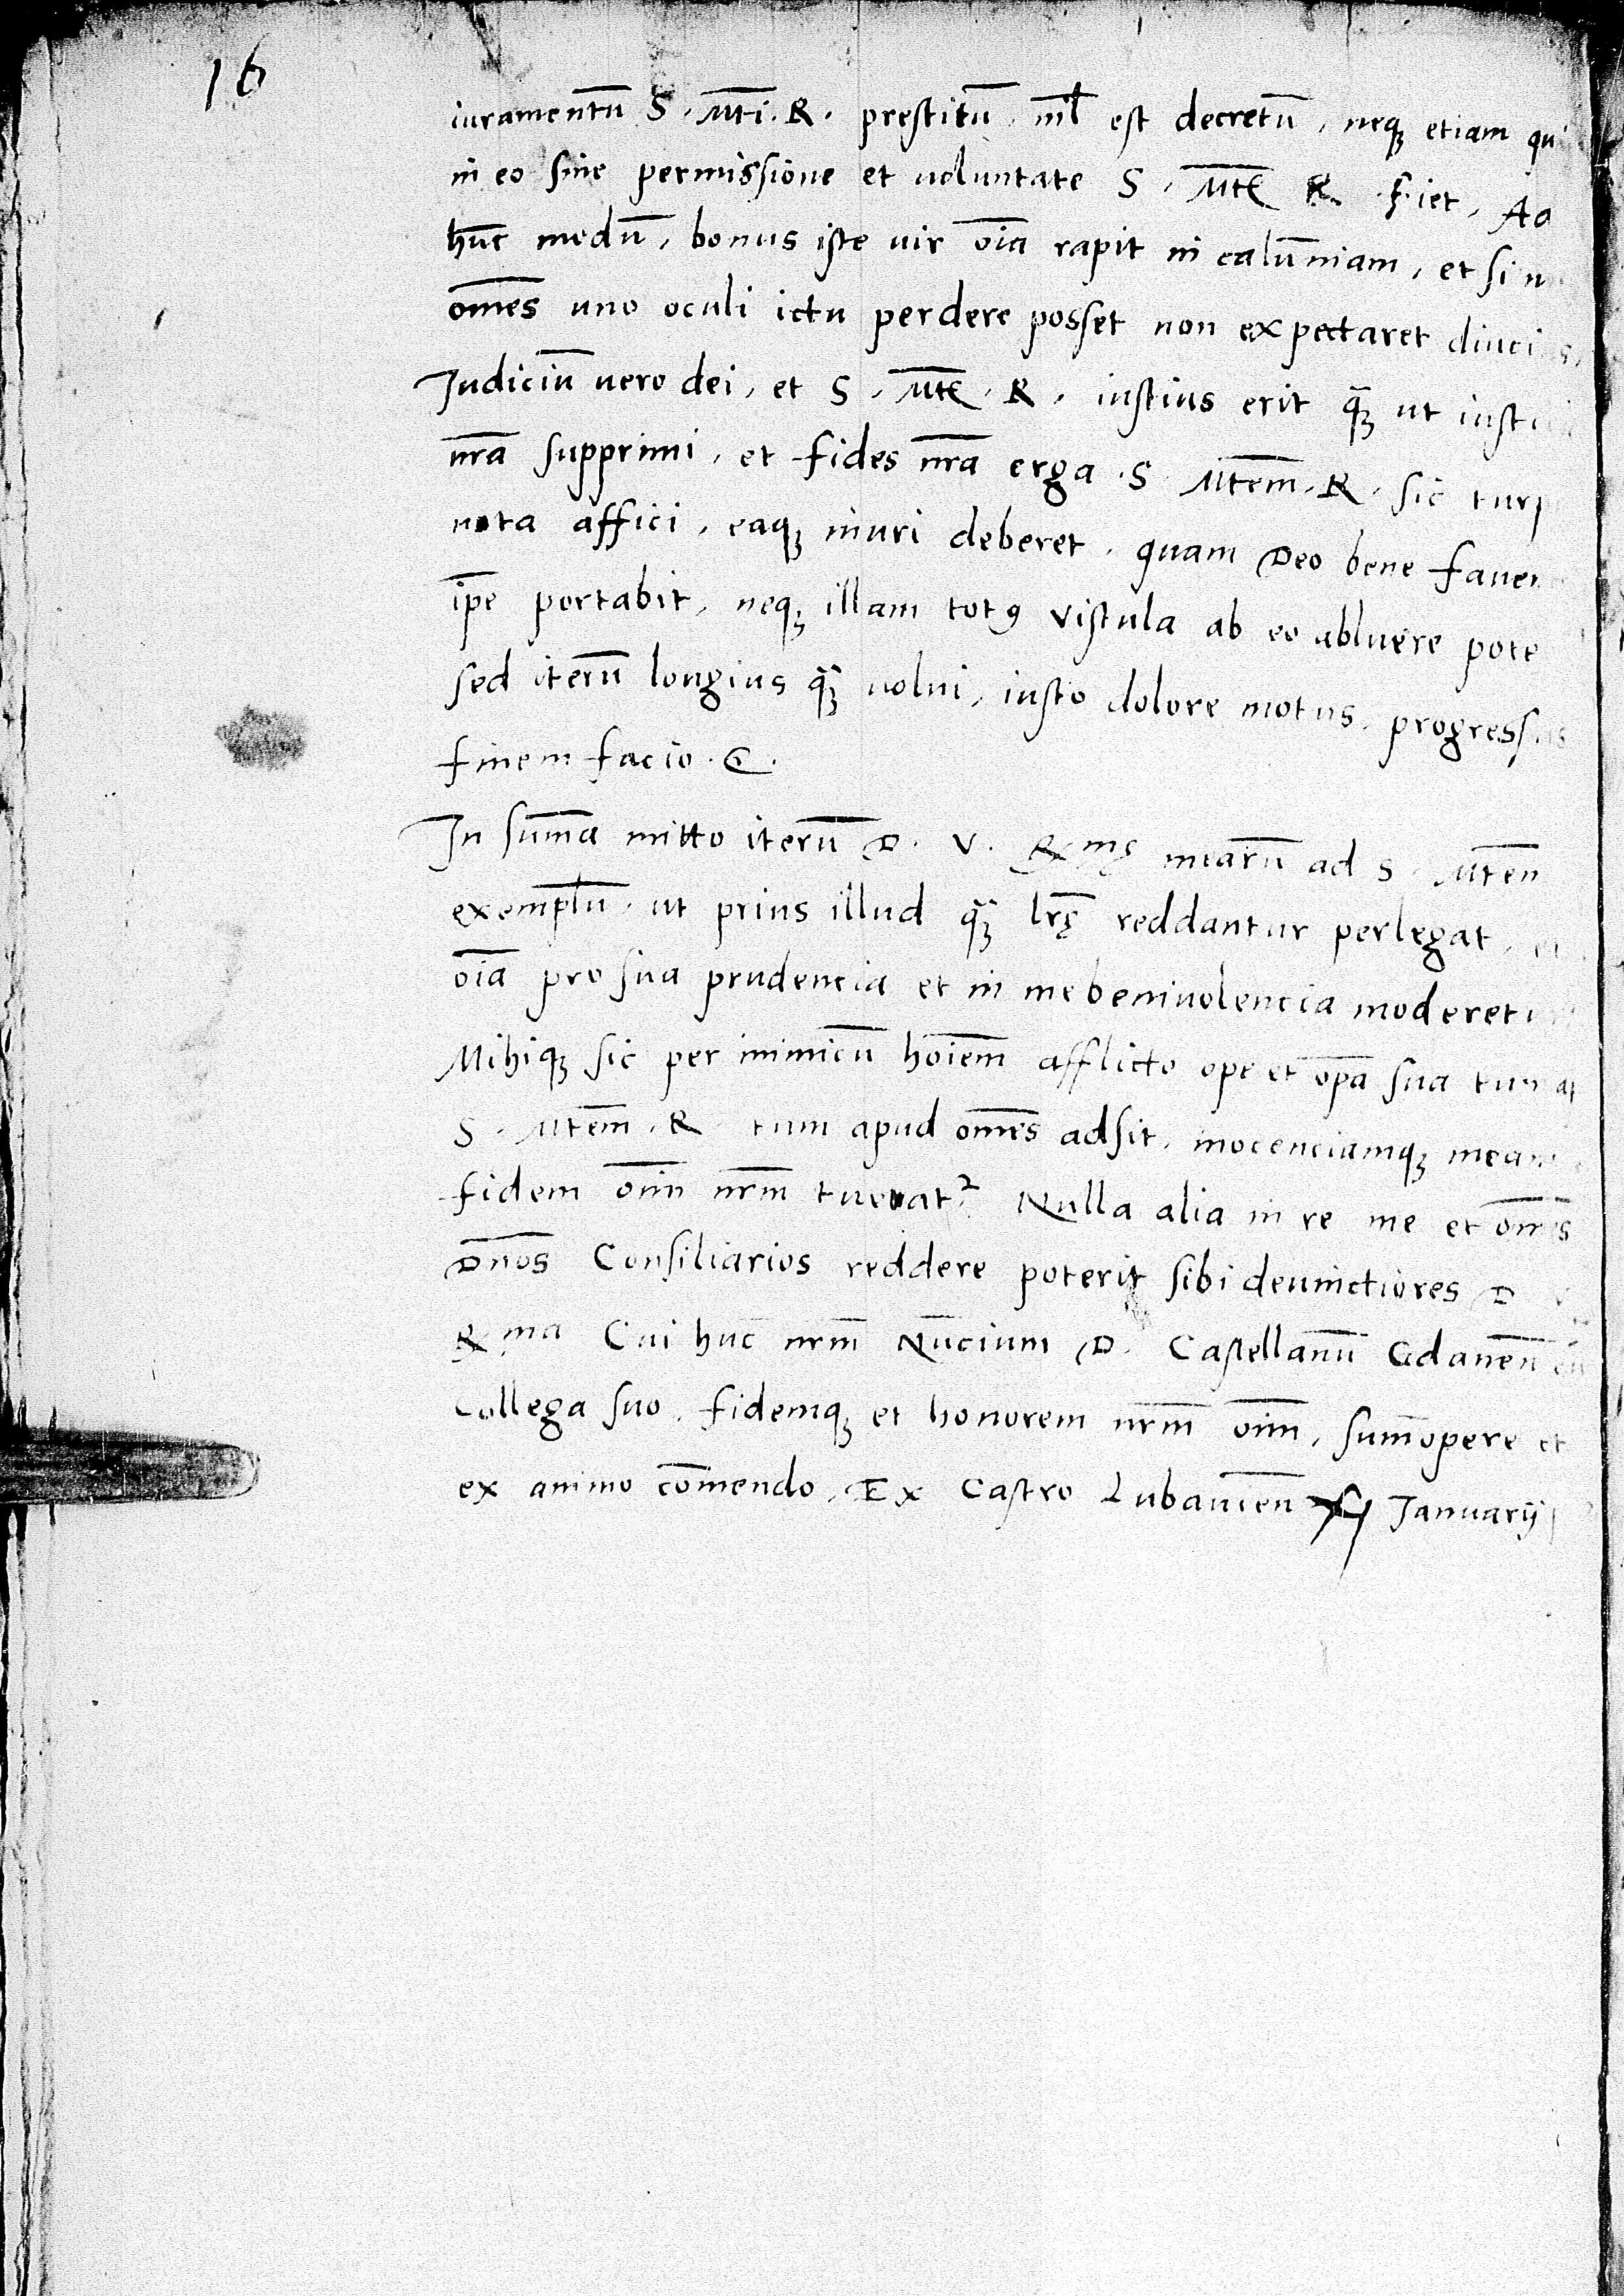 16
iuramentū S. M̄ti. R. prestitū, nil̄ est decretū, neqȝ etiam
in eo sine permissione et uoluntate S. M̄tꝭ R. Fiet, Ad
hūc modū, bonus iste uir oīa rapit in calūniam, et si
om̄es uno oculi ictu perdere posset non expectaret diuci
Judiciū uero dei, et S. M̄tꝭ. R. iustius erit q̄ȝ ut
nr̄a supprimi, et fides nr̄a erga S. M̄tem. R. sic
nota affici, eaqȝ inuri deberet, quam Deo bene
ip̄e portabit, neqȝ illam totꝰ Vistula ab eo abluere pote
sed iterū longius q̄ȝ uolui, iusto dolore motus, progressus
finem facio. C.
In sum̄a mitto iterū D. V. R mę mearū ad S. M̄tem
exemplū, ut prius illud q̄ȝ lr̄ę reddantur perlegat,
oīa pro sua prudencia et in me beniuolencia
Mihiqȝ sic per inimicū hoīem afflicto ope et op̄a sua
S. M̄tem. R. tum apud om̄es adsit, inocenciamqȝ
fidem oīm nr̄m tueatꝛ Nulla alia in re me et om̄es
Dn̄os Consiliarios reddere poterit sibi deuinctiores D
R ma Cui hūc nr̄m Nūcium D. Castellanū Gdanen̄
Collega suo, fidemqȝ et honorem nr̄m oīm, sum̄opere et
ex animo com̄endo, Ex Castro Lubauien̄ Januarij